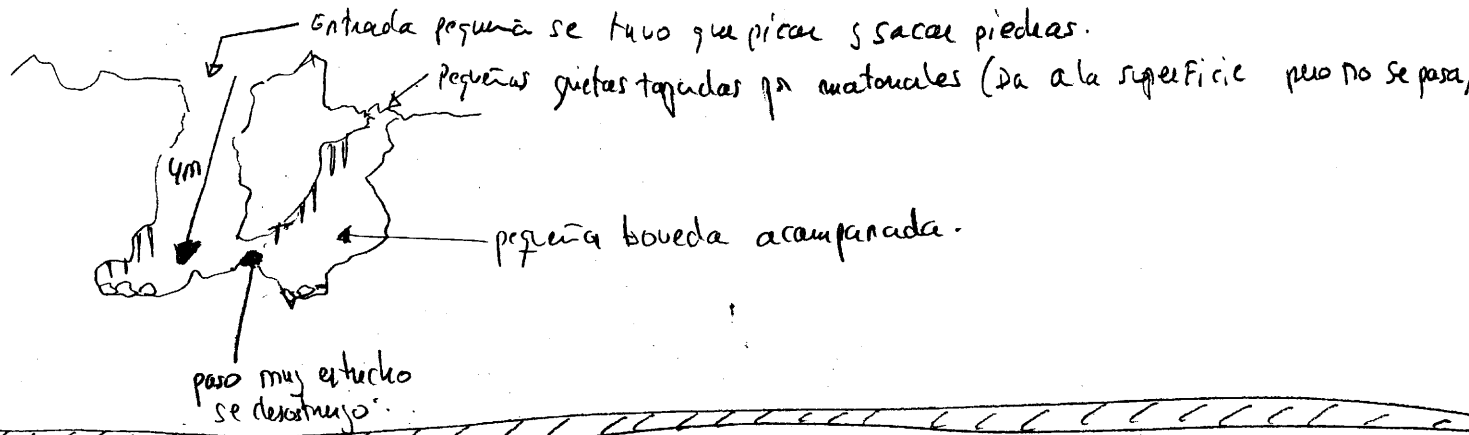 Entrada pequeña se tuvo que picar y sacar piedras.
Pequeñas grietas tapadas por matorrales (Da a la superficie pero no se pasa,
4m
pequeña boveda acampanada.
paso muy estrecho
se desostruyo.